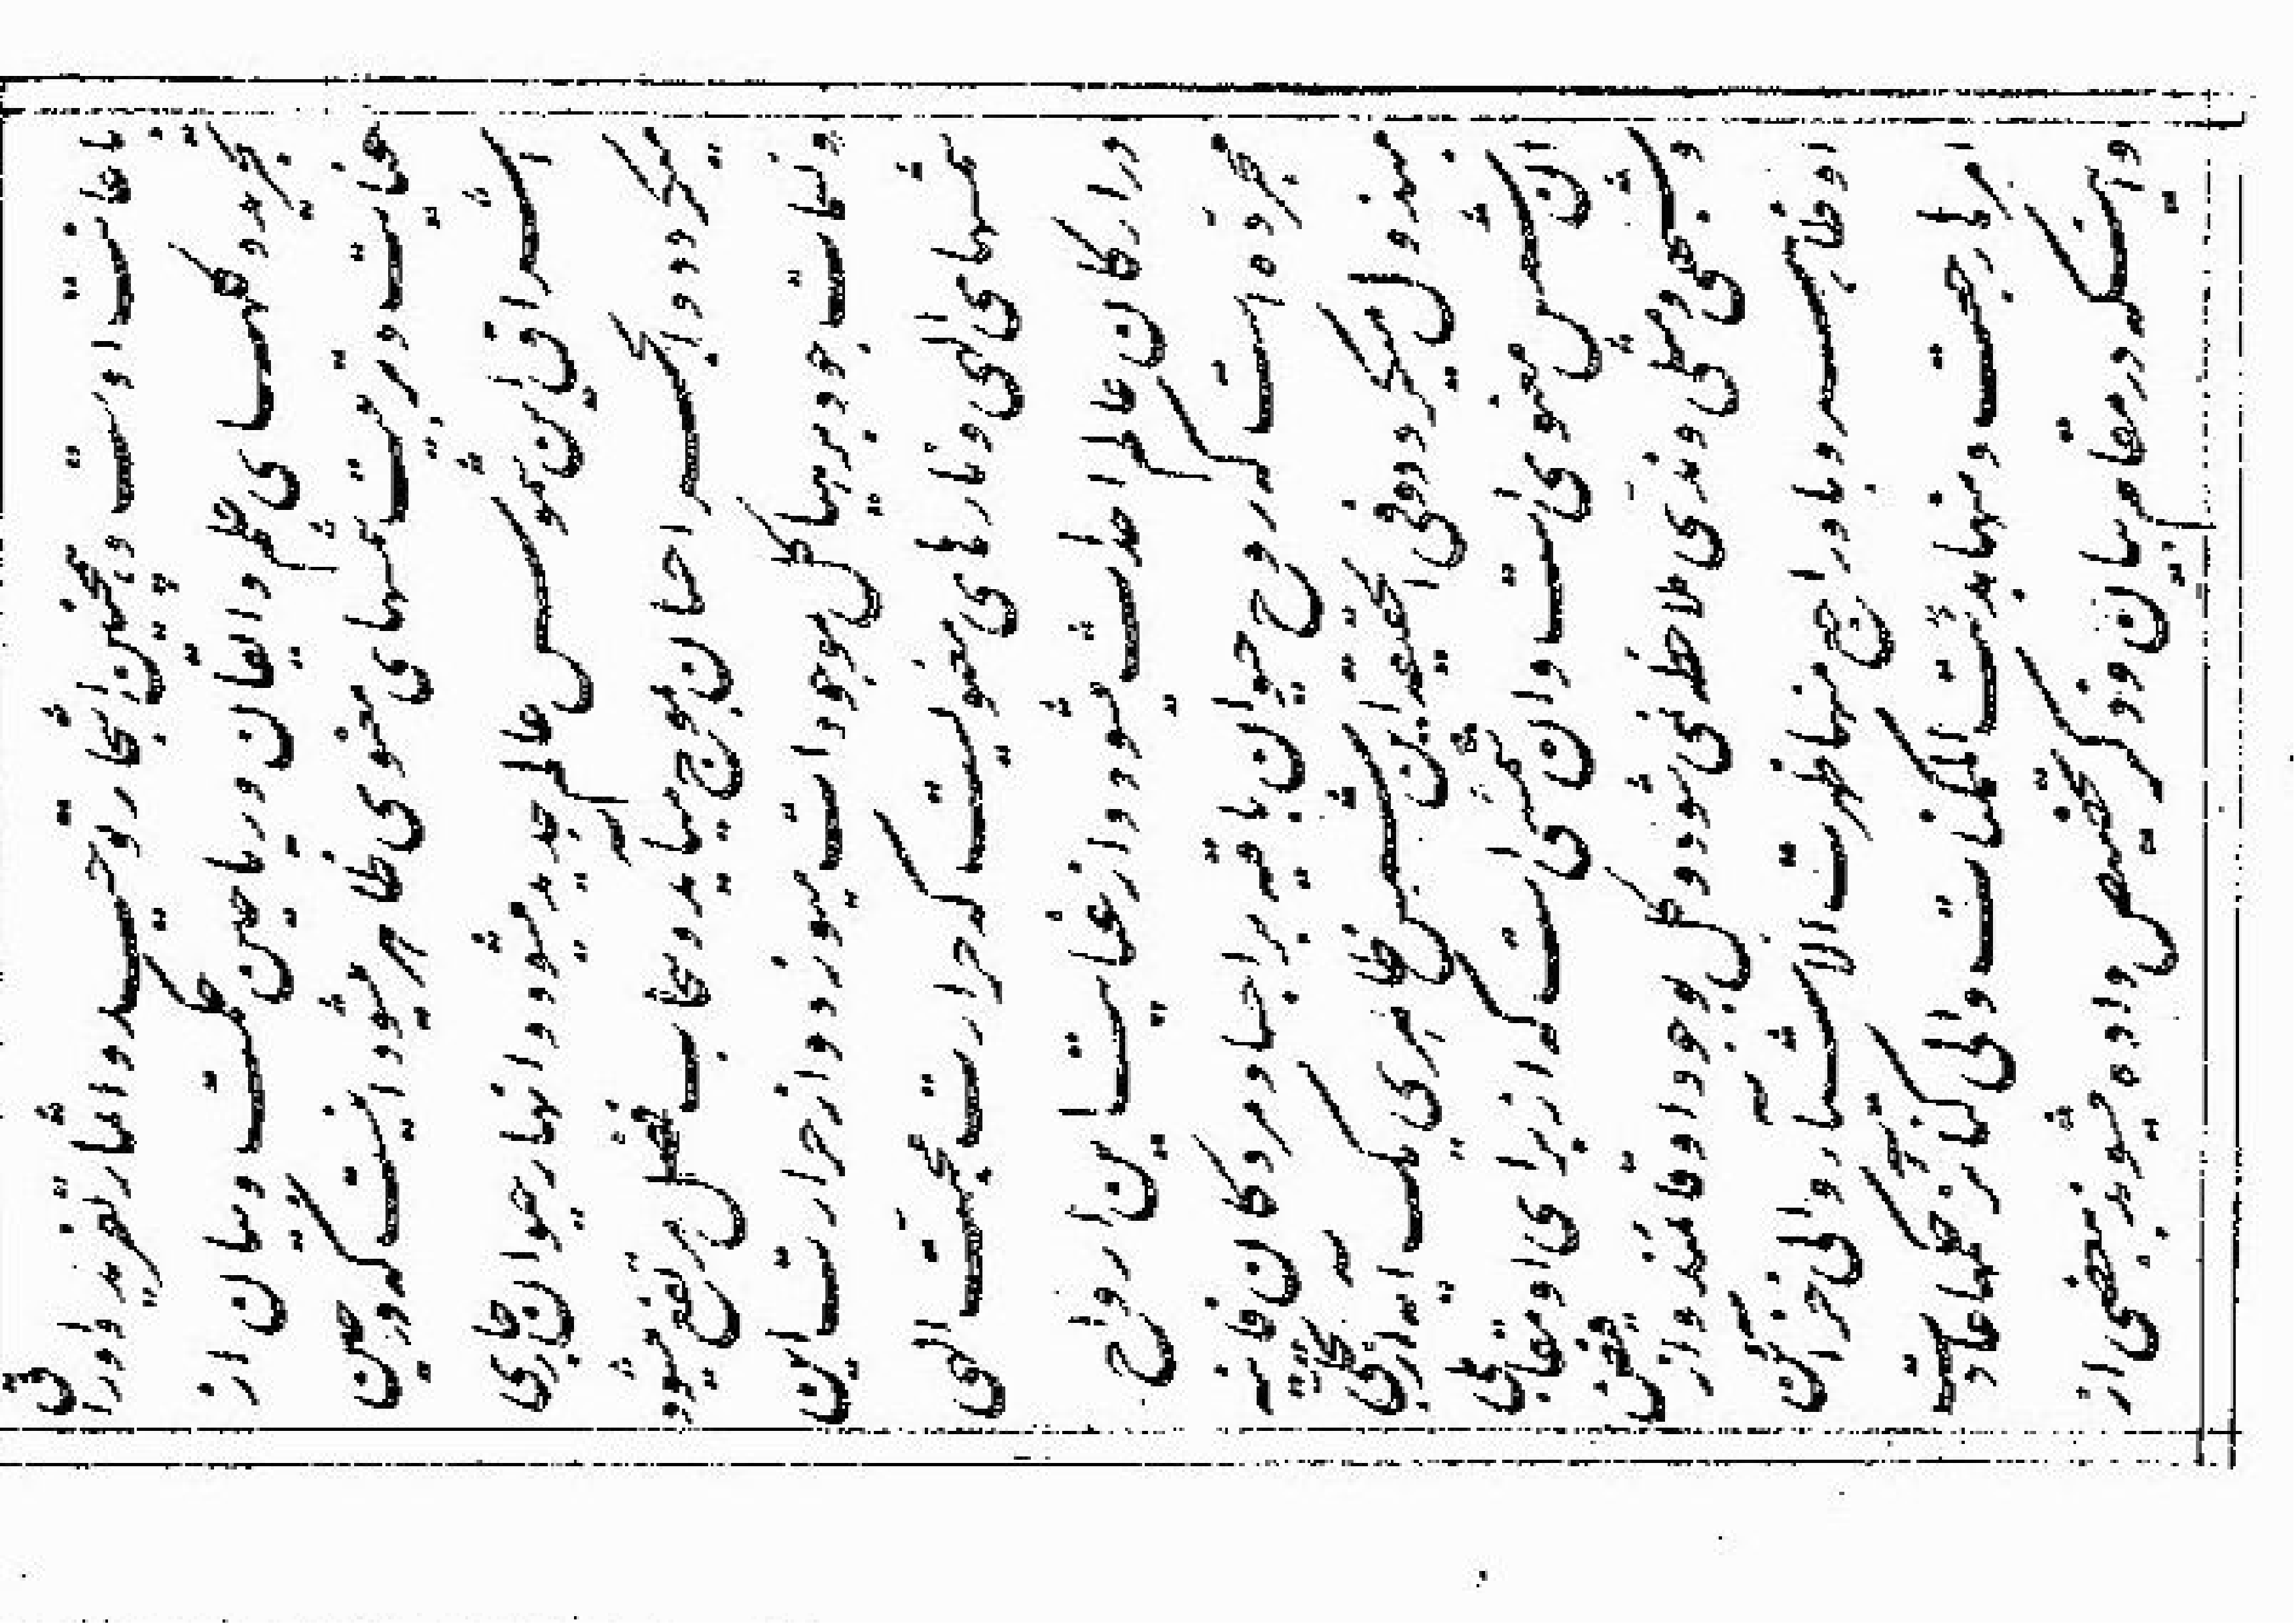 باعانت اوست و همچنین اشجار توحید و اثمار تفرید و اوراق
تجرید و گلهای علم و ایقان و ریاحین حکمت و بیان از
عنایت و تربیت شمسهای معنوی ظاهر میشود اینست که در حین
اشراق این شموس عالم جدید میشود و انهار حیوان جاری
میگردد و ابحر احسان بموج میاید و سحاب فضل مرتفع میشود
و نسمات جود بر هیاکل موجودات میوزد و از حرارت این
شمسهای الهی و نارهای معنویست که حرارت محبت الهی
در ارکان عالم احداث شود و از عنایت این ارواح
مجرده است که روح حیوان باقیه بر اجساد مردگان فانیه
مبذول میگردد و فی الحقیقه این شمس ظاهری یک آیه از تجلی
آن شمس معنوی است و آن شمسی است که از برای او مقابلی
و شبهی و مثلی و ندی ملاحظه نمیشود و کل بوجود او قائمند و از فیض
او ظاهر و باو راجع منها ظهرت الاشیاء و الی خزائن
امرها رجعت و منها بدئت الممکنات و الی کنائز حکمها عادت
و اینکه در مقام بیان و ذکر تخصیص داده میشوند ببعضی از